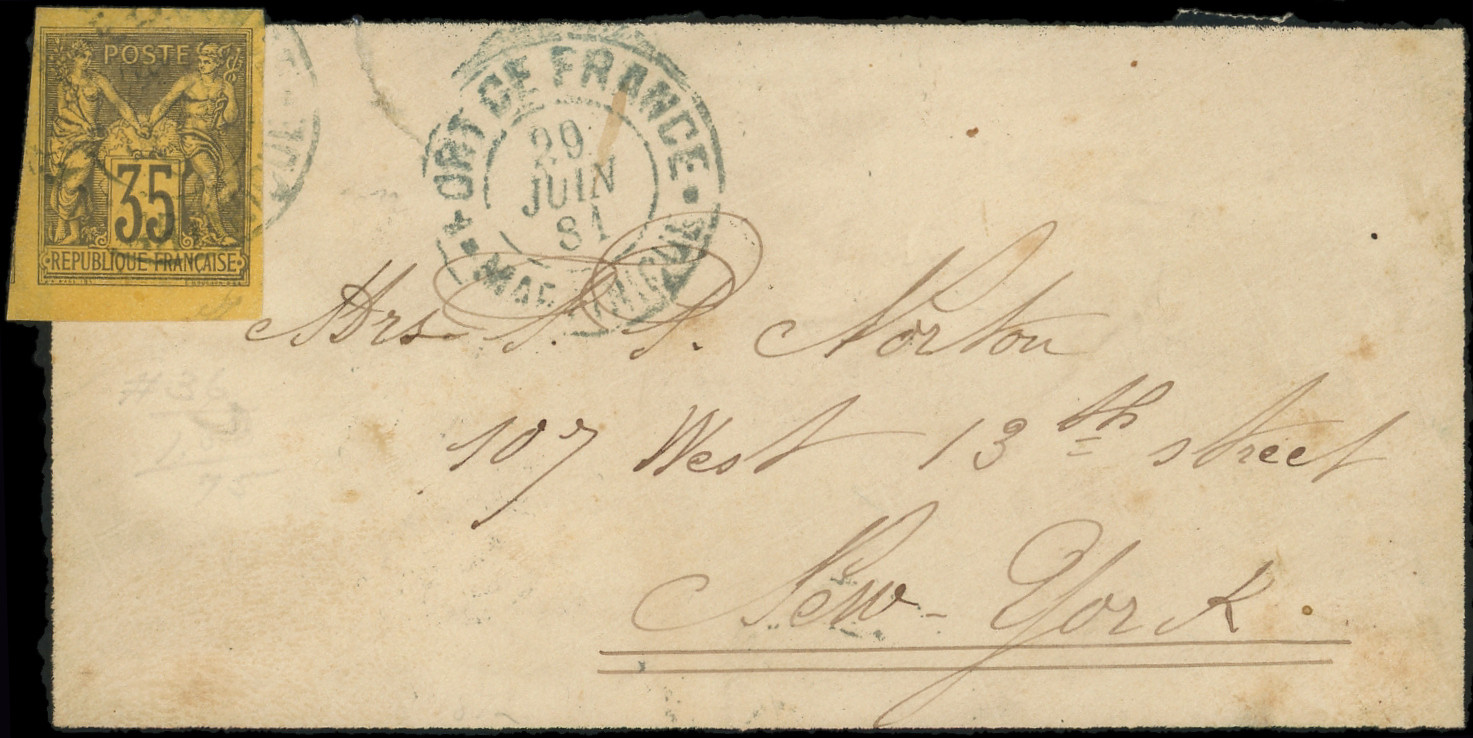 POSTE
35
REPUBLIQUE FRANÇAISE
FORT DE FRANCE
29
JUIN
81
MARTINIQUE
Mrs P. P. Norton
107 West 13th street
New-York.
#36
75